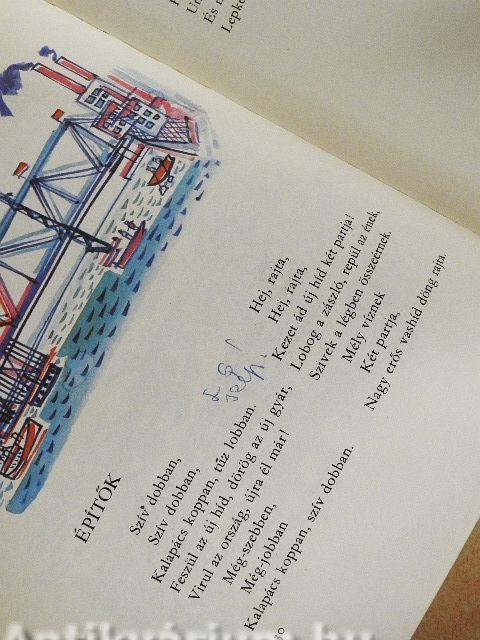 ÉPÍTŐK
Szív dobban,
Szív dobban,
Kalapács koppan, tűz lobban.
Feszül az új híd, dörög az új gyár,
Virul az ország, újra él már!
Még-szebben,
Még-jobban
Kalapács koppan, szív dobban.
Hej, rajta,
Hej, rajta,
Kezet ád új híd két partja!
Lobog a zászló, repül az ének,
Szivek a légben összeérnek.
Mély víznek
Két partja,
Nagy erős vashíd döng rajta.
És
Lepke
Antikvárium.hu